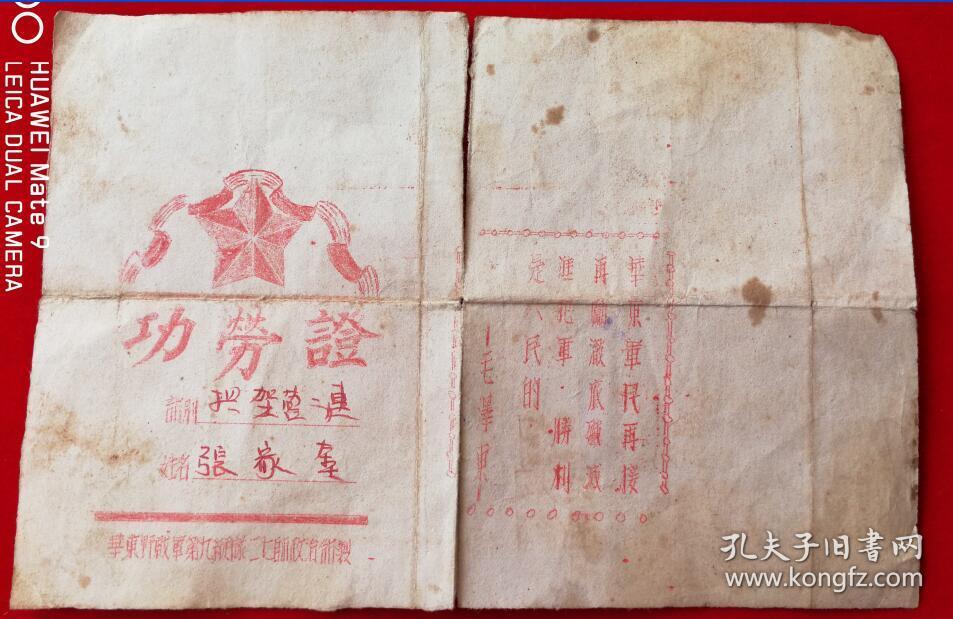 功勞證
部別 担架营連
姓名 張家奎
華東野戰軍第九縱隊二七師政治部製
華東軍民再接
再勵澈底殲滅
進犯軍·勝利
定人民的
毛澤東
HUAWEI Mate 9
LEICA DUAL CAMERA
孔夫子旧书网
www.kongfz.com